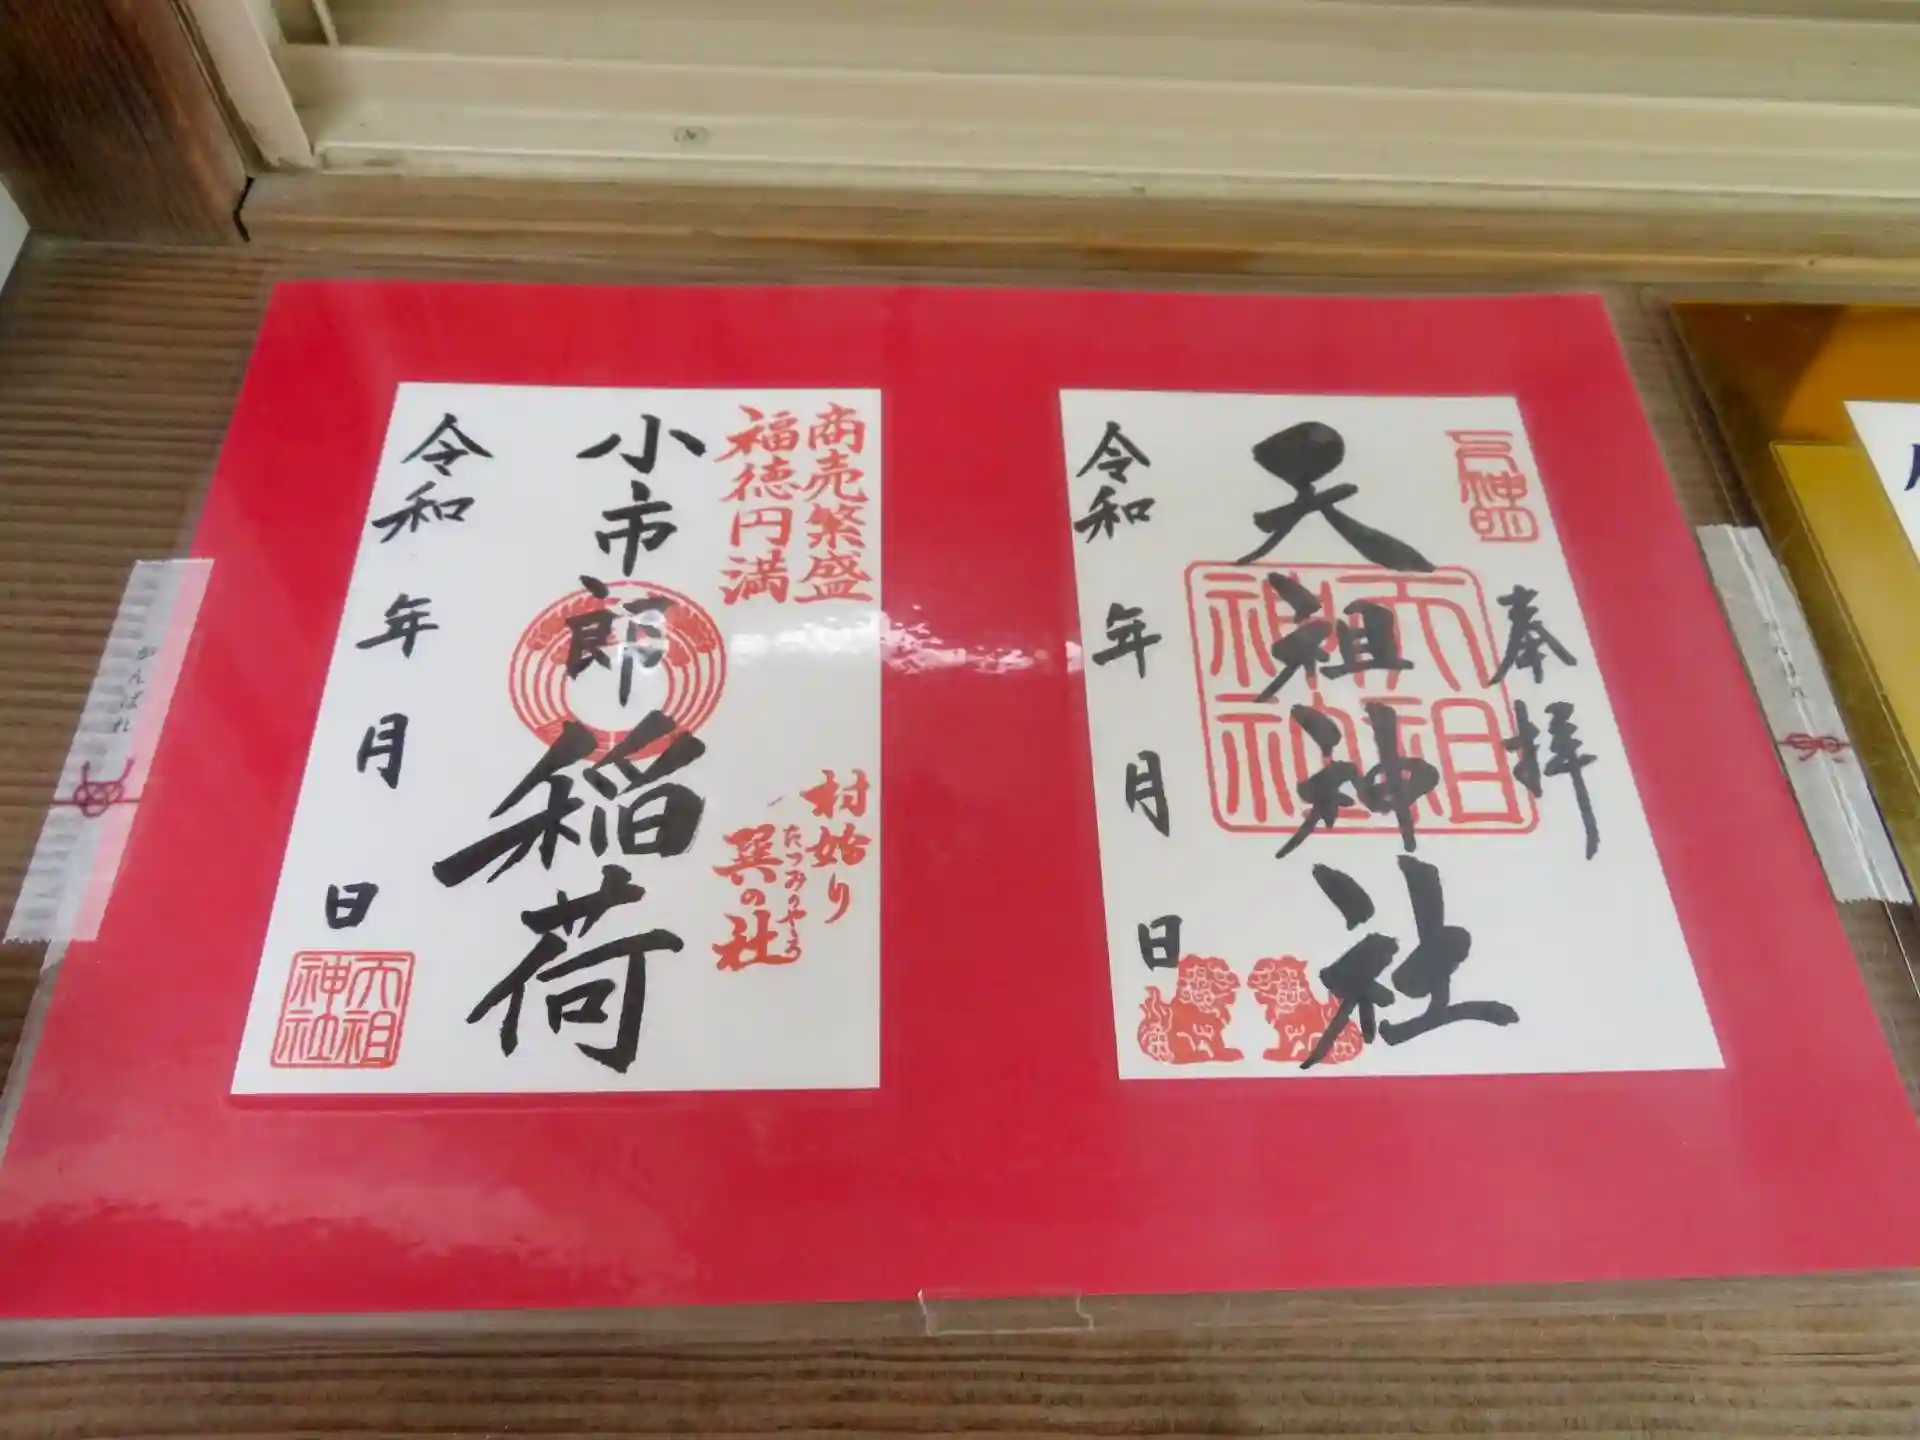 奉拝
天祖神社
天祖神社
令和 年 月 日
商売繁盛
福徳円満
村始り
たつみのやしろ
巽の社
小市郎稲荷
令和 年 月 日
天祖神社
がんばれ